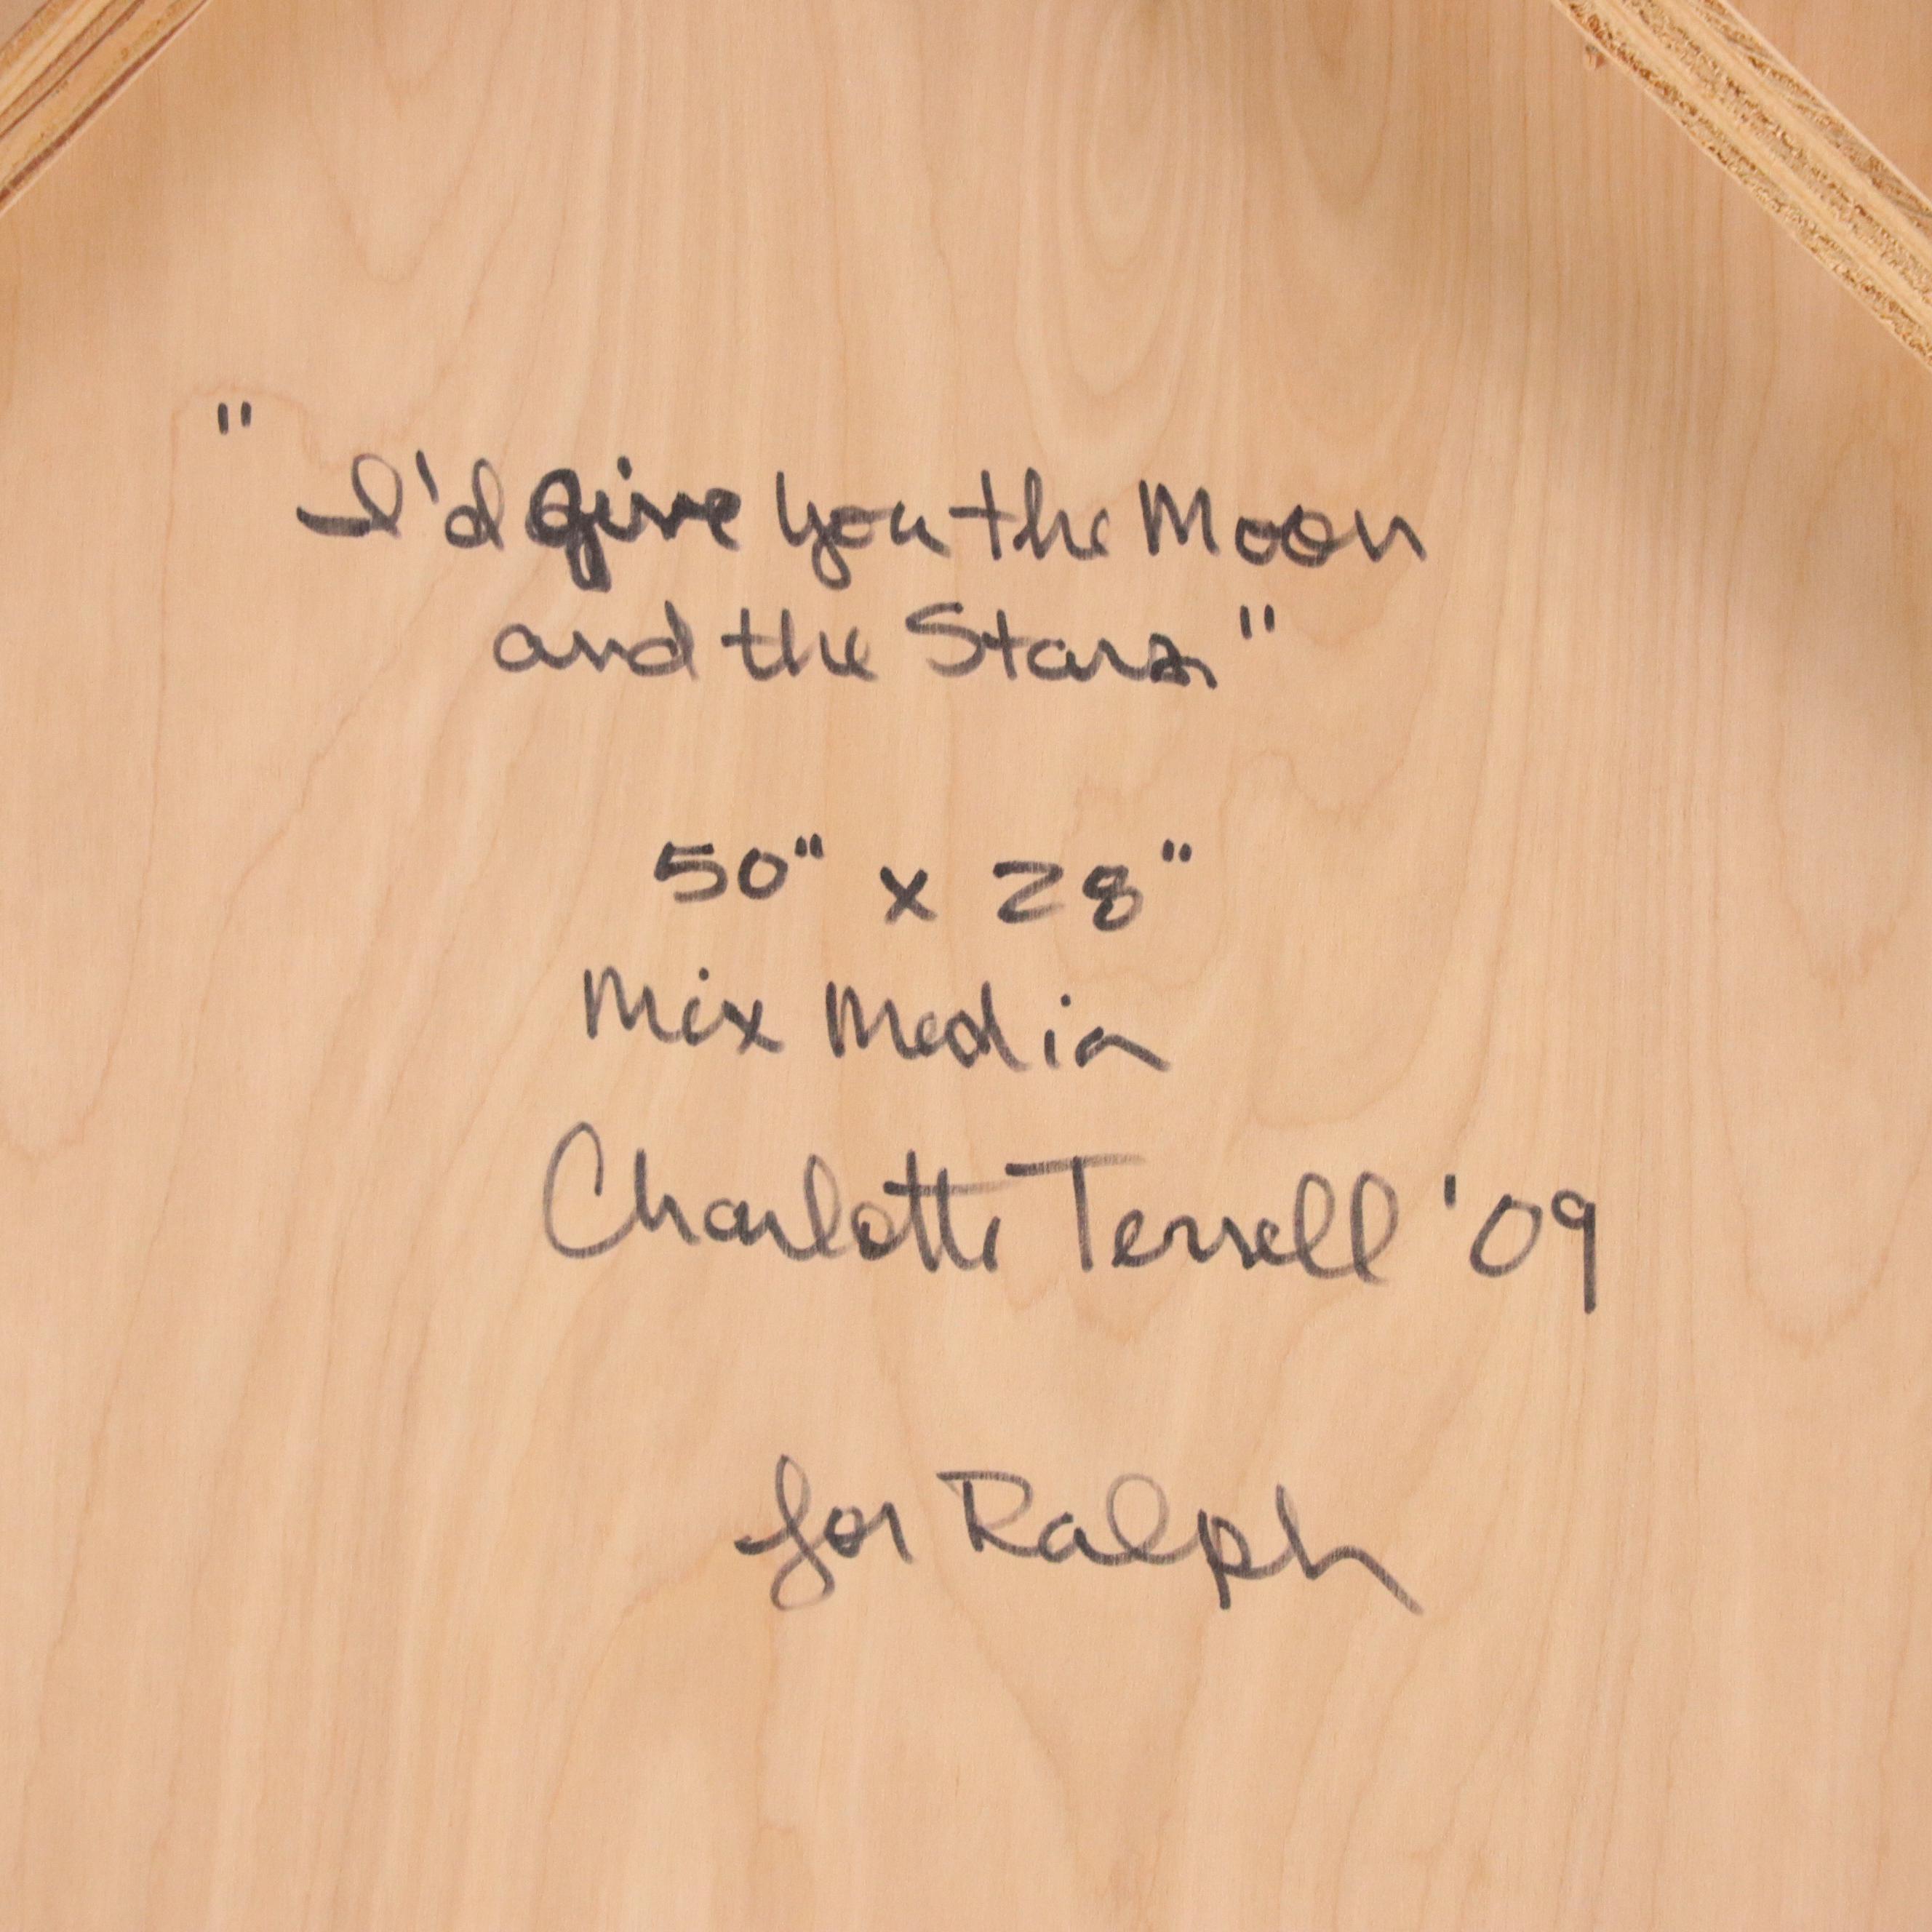 "I'd give you the Moon
and the Stars"
50" x 28"
Mix Media
Charlotte Terrell '09
for Ralph